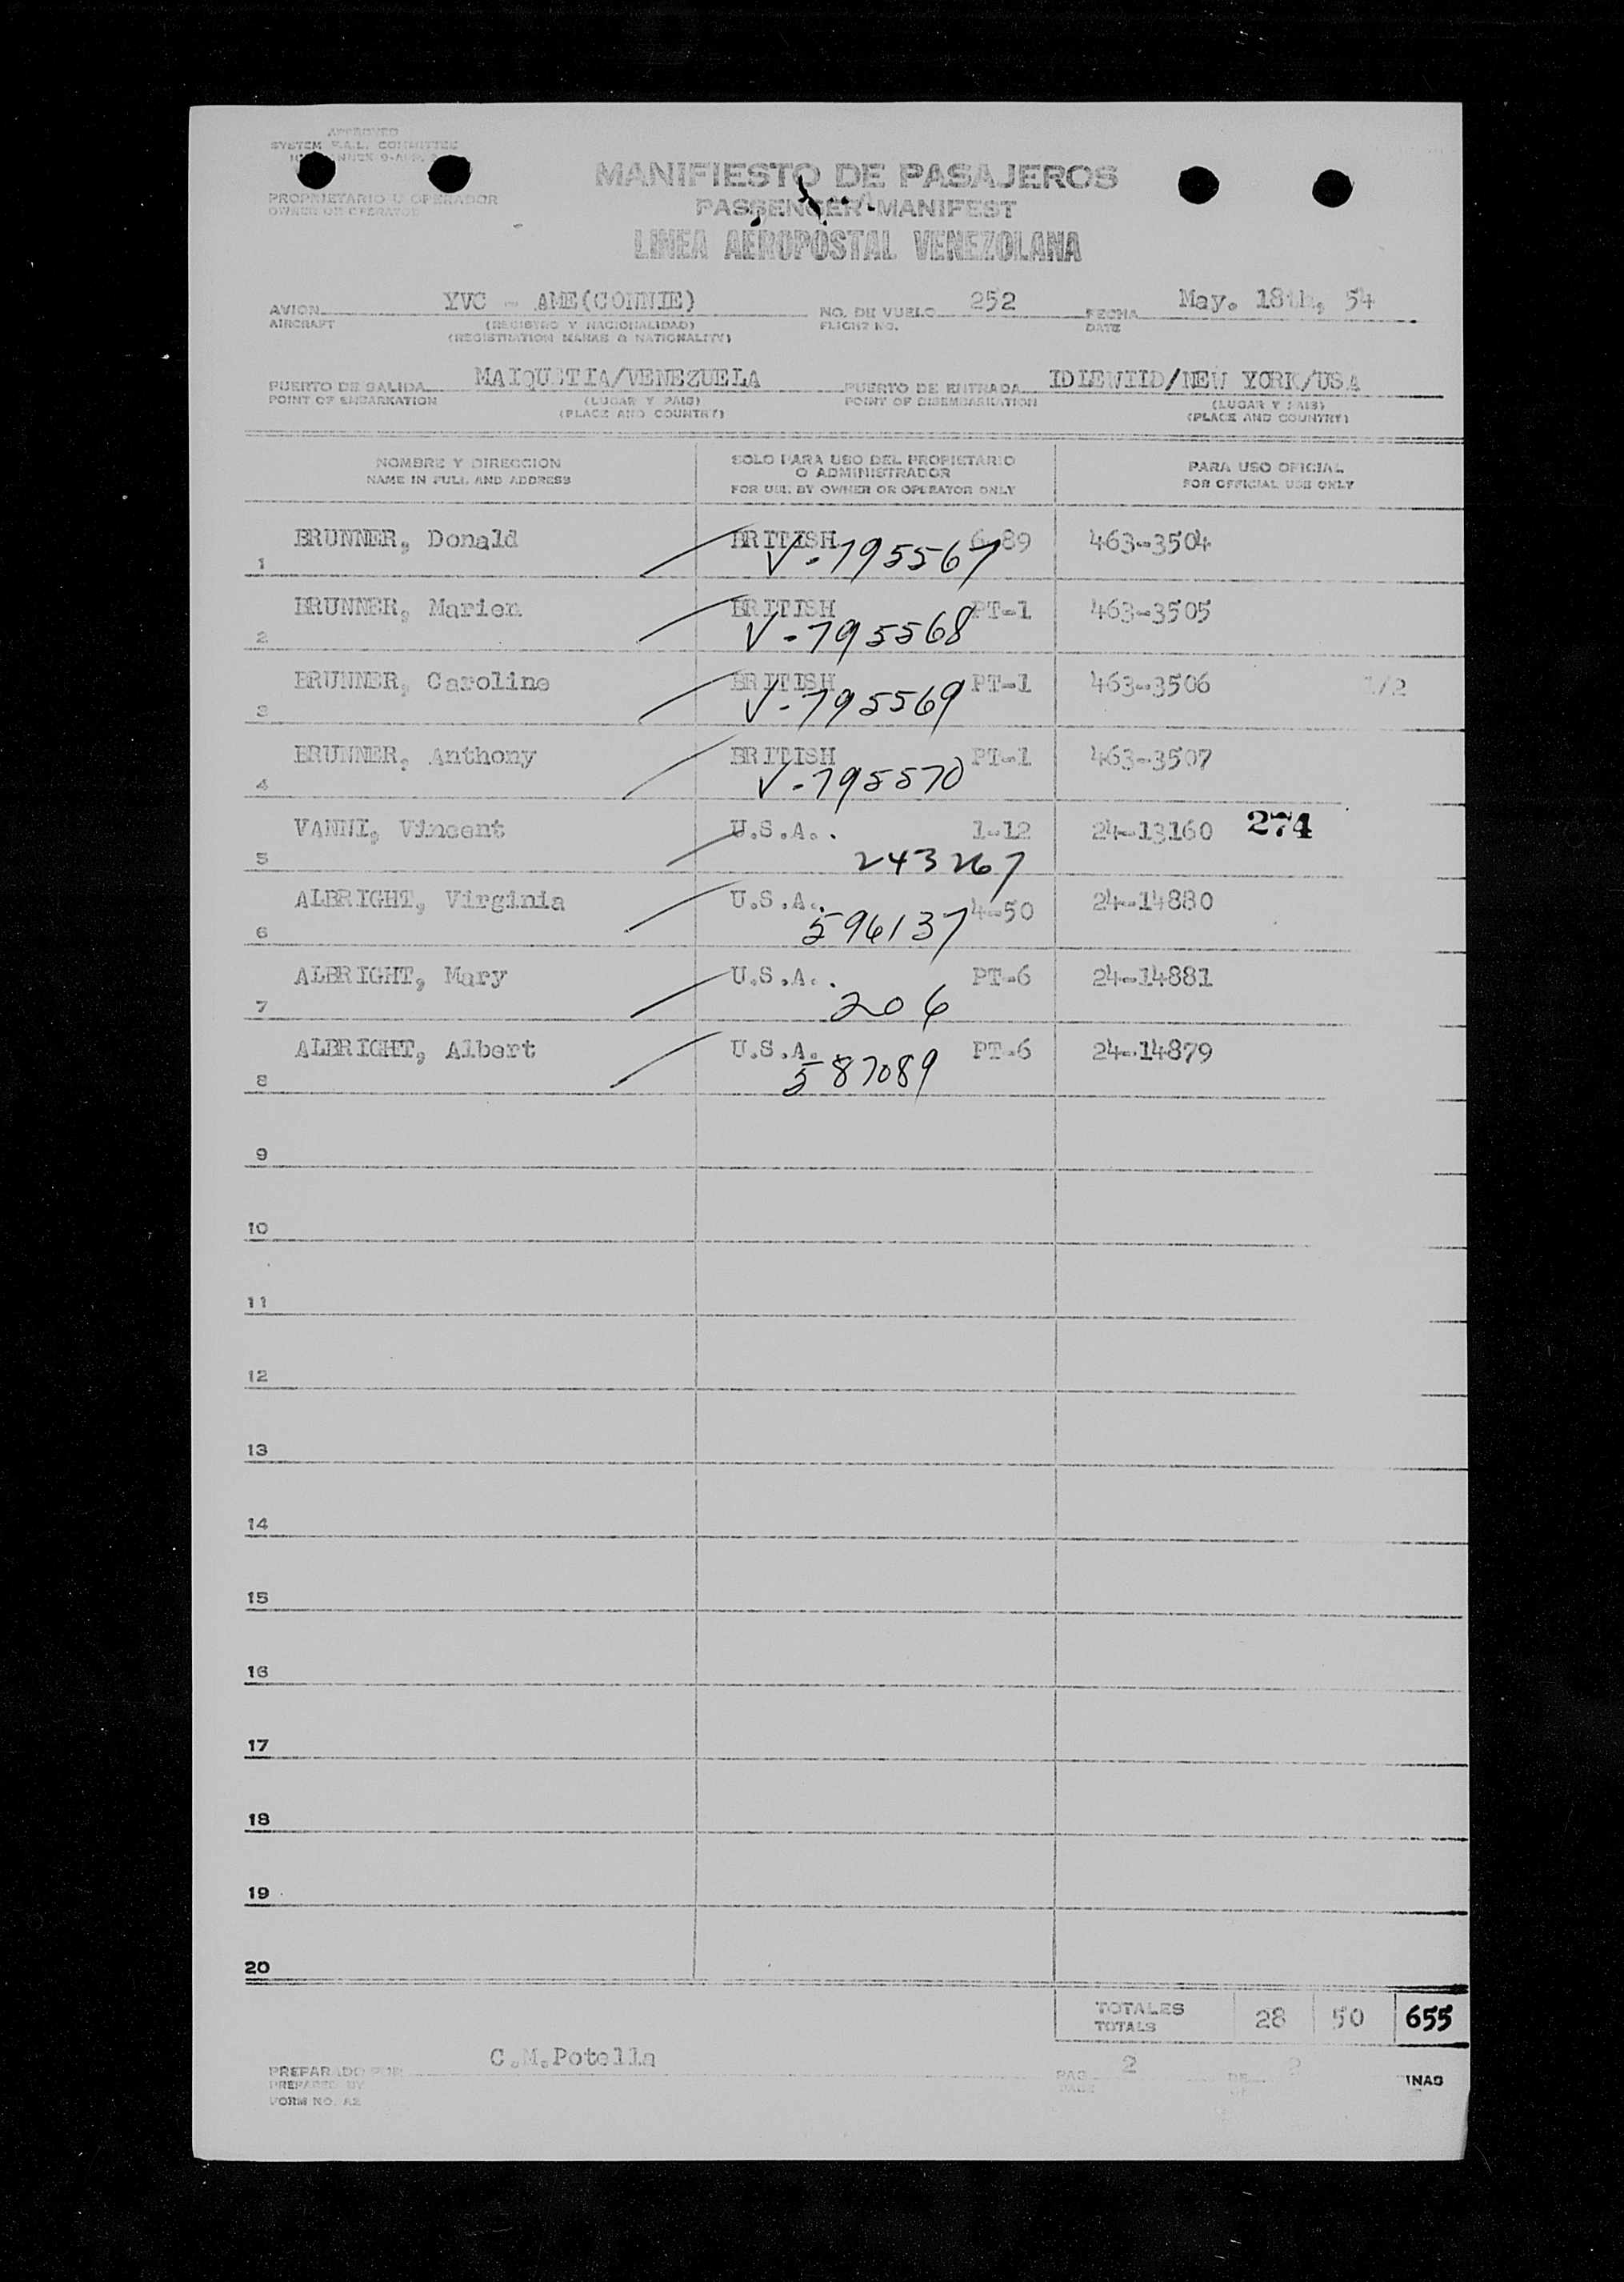 APPROVED
SYSTEM F.A.L. COMMITTEE
MANIFIESTO DE PASAJEROS
PROPRIETARIO U OPERADOR
OWNER OR OPERATOR
PASSENGER MANIFEST
LINEA AEROPOSTAL VENEZOLANA
AVION YVC - AME(CONNIE) NO. DE VUELO 252 FECHA May. 18th, 54
AIRCRAFT (REGISTRO Y NACIONALIDAD) FLIGHT NO. DATE
(REGISTRATION MARKS & NATIONALITY)
PUERTO DE SALIDA MAIQUETIA/VENEZUELA PUERTO DE ENTRADA IDLEWIID/NEW YORK/USA
POINT OF EMBARKATION (LUGAR Y PAIS) POINT OF DISEMBARKATION (LUGAR Y PAIS)
(PLACE AND COUNTRY) (PLACE AND COUNTRY)
NOMBRE Y DIRECCION SOLO PARA USO DEL PROPIETARIO O ADMINISTRADOR PARA USO OFICIAL
NAME IN FULL AND ADDRESS FOR USE BY OWNER OR OPERATOR ONLY FOR OFFICIAL USE ONLY
BRUNNER, Donald BRITISH 6-89 463-3504
1 V-795567
BRUNNER, Marion BRITISH PT-1 463-3505
2 V-795568
BRUNNER, Caroline BRITISH PT-1 463-3506 1/2
3 V-795569
BRUNNER, Anthony BRITISH PT-1 463-3507
4 V-795570
VANNI, Vincent U.S.A. 1-12 24-13160 274
5 243267
ALBRIGHT, Virginia U.S.A. 4-50 24-14880
6 596137
ALBRIGHT, Mary U.S.A. PT-6 24-14881
7 206
ALBRIGHT, Albert U.S.A. PT-6 24-14879
8 587089
9
10
11
12
13
14
15
16
17
18
19
20
TOTALES 28 50 655
TOTALS
C.M.Potella
PREPARADO POR PAG 2 DE 2 INAG
PREPARED BY PAGE OF
FORM NO. A2